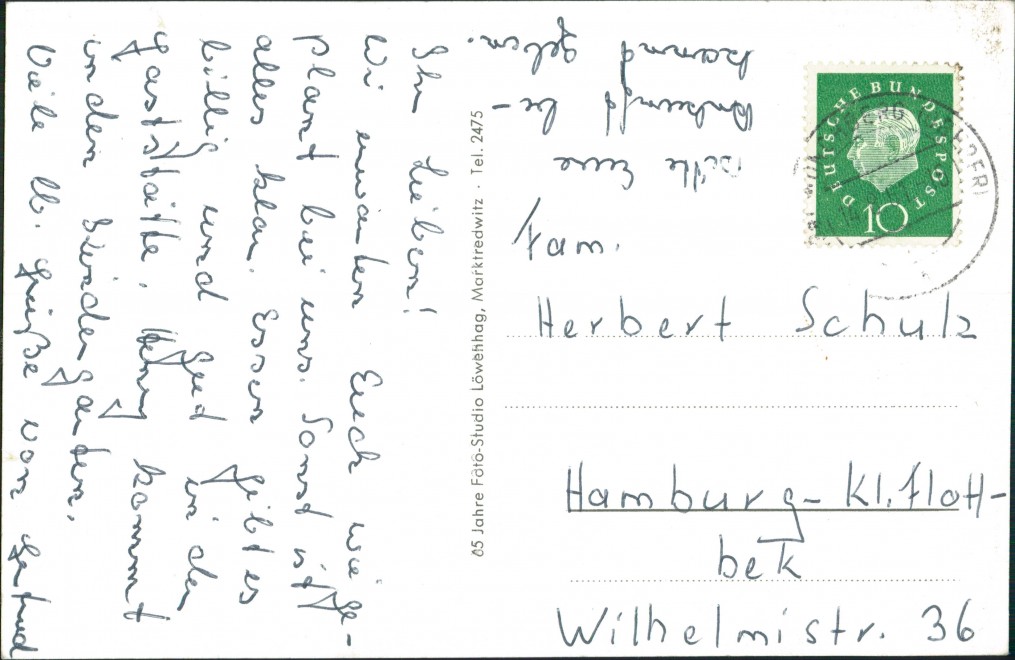 Ihr Lieben!
Wi erwarten Euch wie ge-
plant bei uns. Sonst ist
alles klar. Essen gibt es
billig und gut in der
Gaststätte. kommt
in den Kindergarten.
Viele lb. Grüße von Gertrud
Bitte Eure
Ankunft be-
kannt geben.
85 Jahre Foto-Studio Löwenhag, Marktredwitz · Tel. 2475
DEUTSCHE BUNDESPOST
10
Fam.
Herbert Schulz
Hamburg-Kl.flott-
bek
Wilhelmistr. 36